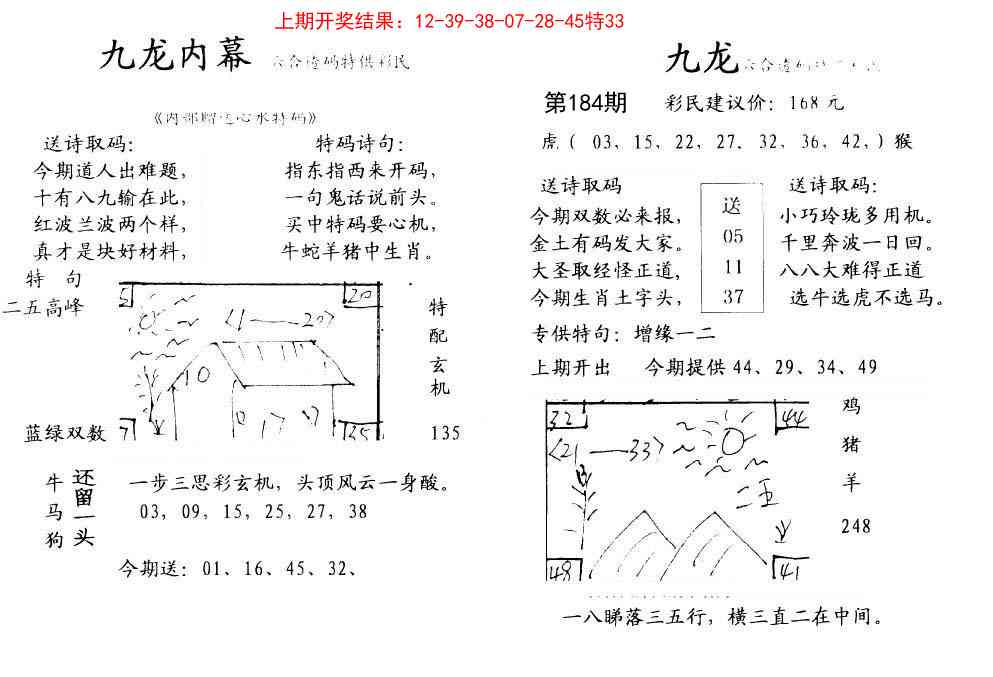 上期开奖结果：12-39-38-07-28-45特33
九龙内幕
《内部赠送心水特码》
送诗取码：
今期道人出难题，
十有八九输在此，
红波兰波两个样，
真才是块好材料，
特码诗句：
指东指西来开码，
一句鬼话说前头。
买中特码要心机，
牛蛇羊猪中生肖。
特 句
二五高峰
蓝绿双数
5
20
<1——20>
10
7
35
特配玄机
135
牛马狗
还留一头
一步三思彩玄机，头顶风云一身酸。
03，09，15，25，27，38
今期送：01、16、45、32、
九龙
第184期
彩民建议价：168 元
虎（ 03、15、22、27. 32、36、42，）猴
送诗取码
今期双数必来报，
金土有码发大家。
大圣取经怪正道，
今期生肖土字头，
送
05
11
37
送诗取码：
小巧玲珑多用机。
千里奔波一日回。
八八大难得正道
选牛选虎不选马。
专供特句：增缘一二
上期开出 今期提供 44、29、34、49
32
44
<21——33>
48
41
鸡
猪
羊
248
一八睇落三五行，横三直二在中间。